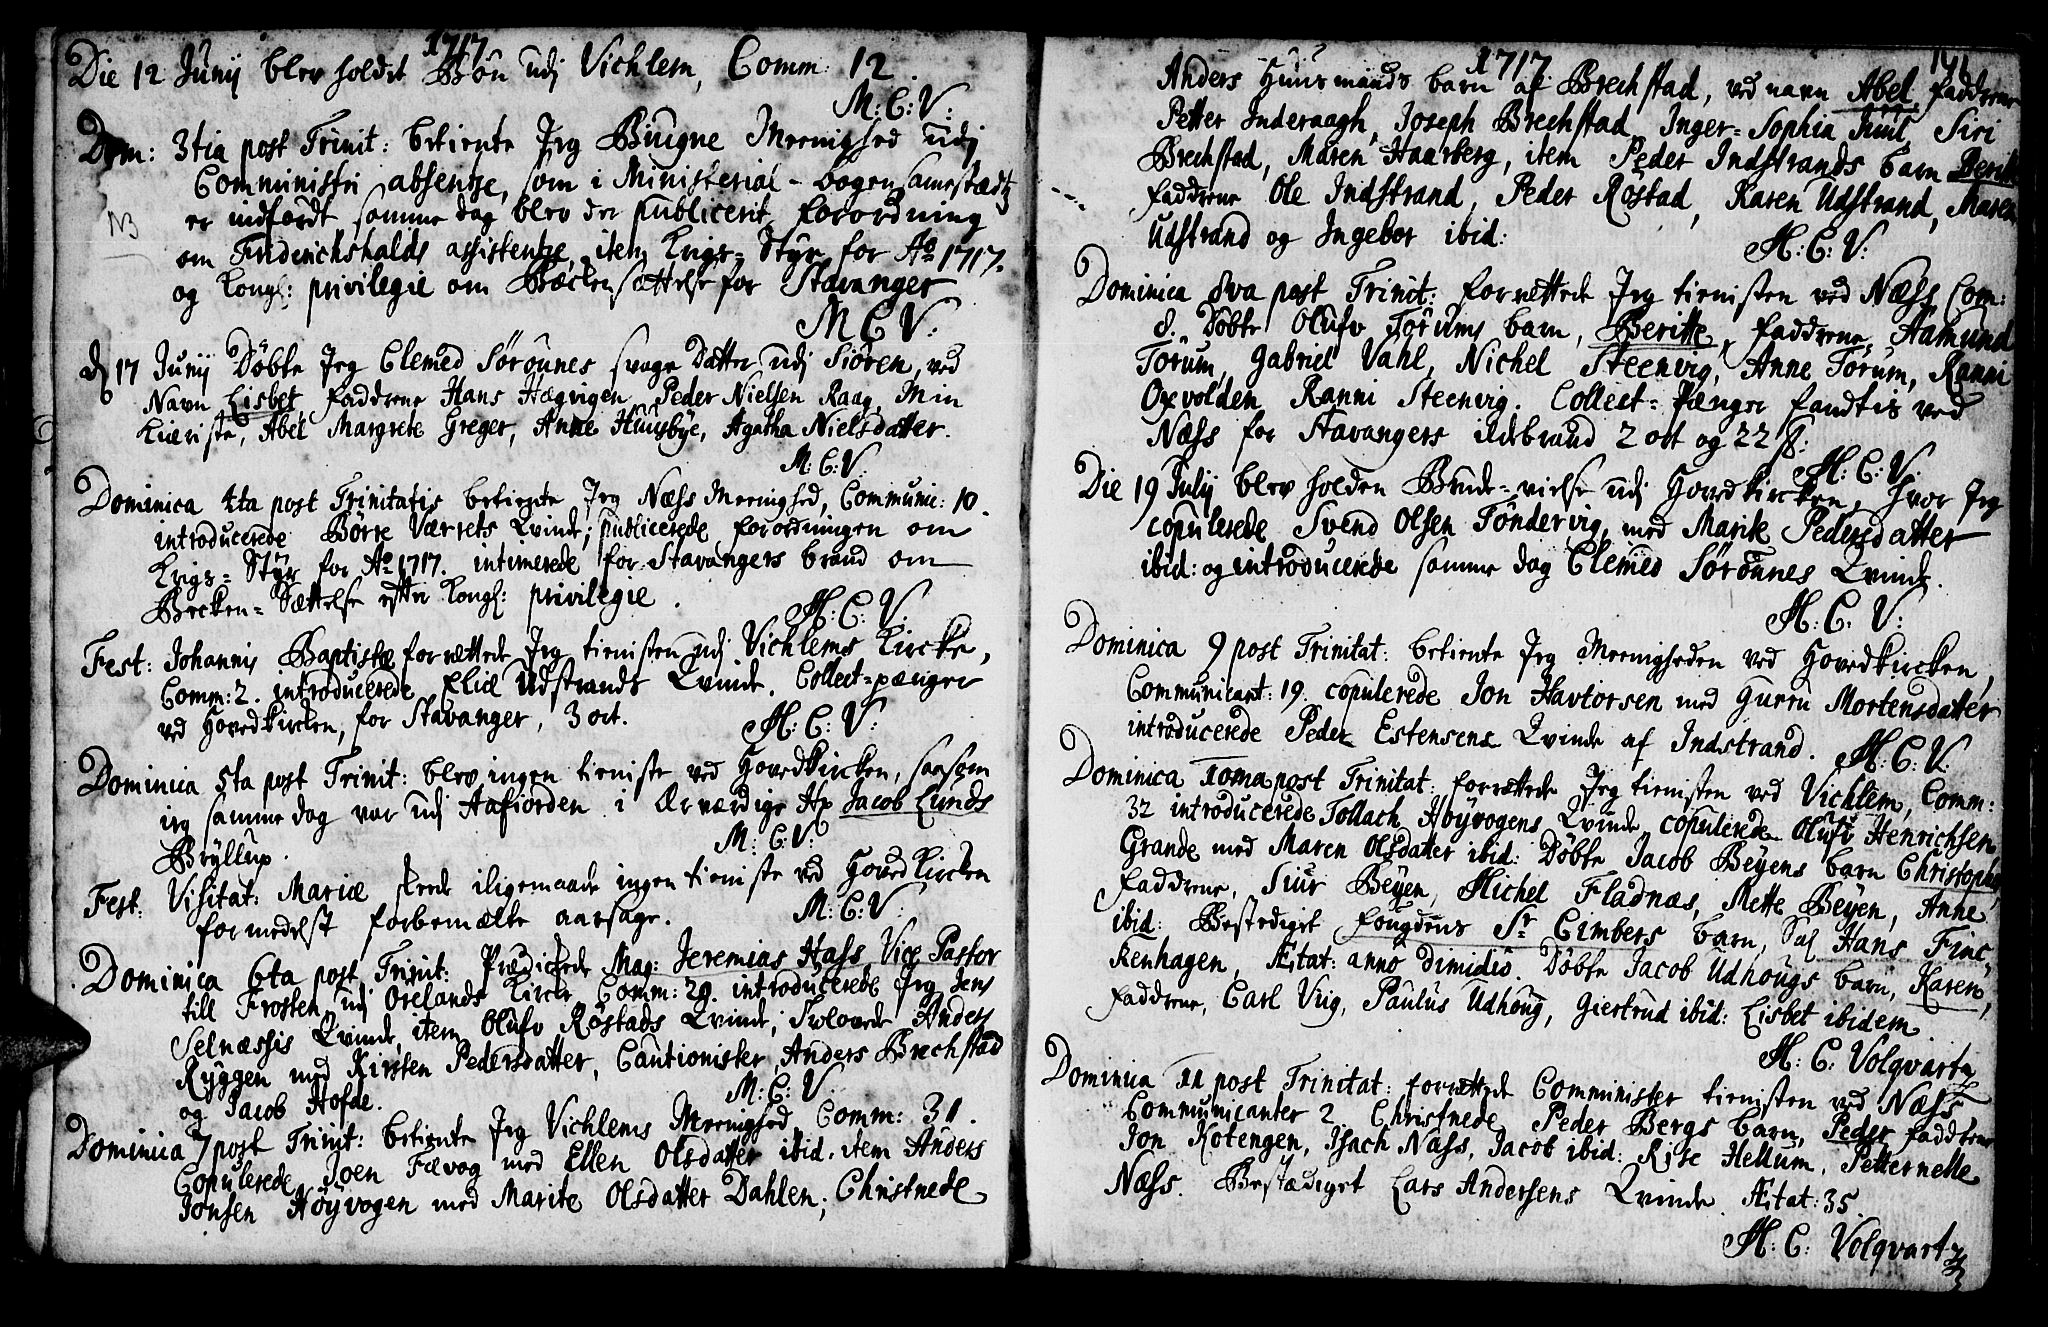 1717
Die 12 Junij blev holdet Bøn udj Vichlem, Comm: 12.
M: C: V:
Dom: 3tia post Trinit: betiente Jeg Biugne Meenighed udj
Comministri absentze, som i Ministerial-bogen samestædtz
NB
er indførdt samme dag blev der publicerit, forordning
om Friderichshalds assistentze, item Krigs-Styr for Ao 1717.
og Kongl: privilegie om Becken-sættelse for Stavanger
M C V:
d 17 Junij Døbte Jeg Clemed Sørounes svage Datter udj Siøren, ved
Navn Lisbet, faddrene Hans Hægvigen, Peder Nielsen Raag, Min
Kiæriste, Abel Margrete Greger, Anne Huusbye, Agatha Nielsdatter.
M: C: V:
Dominica 4ta post Trinitatis betiente Jeg Næss Meenighed, Communic: 10.
introducerede Børre Værrets Qvinde; publicerede forordningen om
Krigs-Styr for Ao 1717. intimerede for Stavangers brand om
Becken-Sættelse efter Kongl: privilegie.
M: C: V:
Fest: Johannis Baptistæ forrettede Jeg tienisten udj Vichlems Kircke,
Comm: 2. introducerede Elie Udstrands Qvinde. Collect-pænger
ved Hovedkircken, for Stavanger, 3 ort.
M: C: V:
Dominica 5ta post Trinit: blev ingen tieniste ved Hovedkircken, saasom
ieg samme dag var udj Aafiorden i Ærværdige Hr Jacob Lunds
Bryllup.
M: C: V:
Fest: Visitat: Mariæ skede iligemaade ingen tieniste ved Hovedkircken
formedelst forbemælte aarsage.
M: C: V:
Dominica 6ta post Trinit: Prædickede Mag: Jeremias Hass Vice Pastor
till Frosten udj Ørelands Kircke, Comm: 29. introducerede Jeg Jens
Selnæssis Qvinde, item Olufv Røstads Qvinde; Trolovede Anders
Ryggen med Kirsten Pedersdatter, Cautionister, Anders Brechstad
og Jacob Hofde.
M: C: V:
Dominica 7 post Trinit: betiente Jeg Vichlems Meenighed, Comm: 31.
Copulerede Joen Fævog med Ellen Olsdatter ibid. item Anders
Jonsen Høyvogen med Marite Olsdatter Dahlen; Christnede
1717.
141
Anders Huusmands barn af Brechstad, ved navn Abel, faddrene
Petter Inderaagh, Joseph Brechstad, Inger-Sophia Juul, Siri
Brechstad, Maren Haarberg, item Peder Indstrands barn Berit
faddrene Ole Indstrand, Peder Røstad, Karen Udstrand, Maren
Udstrand og Ingebor ibid:
M: C: V:
Dominica 8va post Trinit: forrettede Jeg tienisten ved Næss, Com:
8. Døbte Olufv Tørums barn, Beritte, faddrene, Aamund
Tørum, Gabriel Vahl, Nichel Steenvig, Anne Tørum, Ranni
Opvolden, Ranni Steenvig. Collect-Pænger fandtis ved
Næss for Stavangers ildebrand 2 ort og 22 ß:
M: C: V:
Die 19 Julij blev holden Brude-vielse udj Hovedkircken, hvor Jeg
copulerede Svend Olsen Tøndervig, med Marite Pedersdatter
ibid: og introducerede samme dag Clemed Sørounes Qvinde.
M: C: V:
Dominica 9 post Trinitat: betiente Jeg Meenigheden ved Hovedkircken,
Communicant: 19. copulerede Jon Havtorsen med Gurru Mortensdatter
introducerede Peder Estensens Qvinde af Indstrand.
M: C: V:
Dominica 10ma post Trinitat: forrettede Jeg tienisten ved Vichlem, Comm:
32 introducerede Tollach Høyvogens Qvinde, copulerede Olufv Henrichsen
Grande med Maren Olsdatter ibid: Døbte Jacob Beyens barn Christopher,
faddrene, Siur Beyen, Michel Fladnæs, Mette Beyen, Anne
ibid: Bestediget fougdens Sr Cimbers barn, Sal Hans Finc-
kenhagen, Ætat: anno dimidio. Døbte Jacob Udhougs barn, Karen,
faddrene, Carl Viig, Paulus Udhoug, Giertrud ibid: Lisbet ibidem
M: C: Volqvartz
Dominica 11 post Trinitat: forrettet Comminister tienisten ved Næss
Communicanter 2 Christnede Peder Bergs barn, Peder faddrene
Jon Kotengen, Isach Næss, Jacob ibid: Rise Hellum, Petternelle
Næss. Bestædiget Lars Andersens Qvinde. Ætat: 35.
M: C: Volqvartz